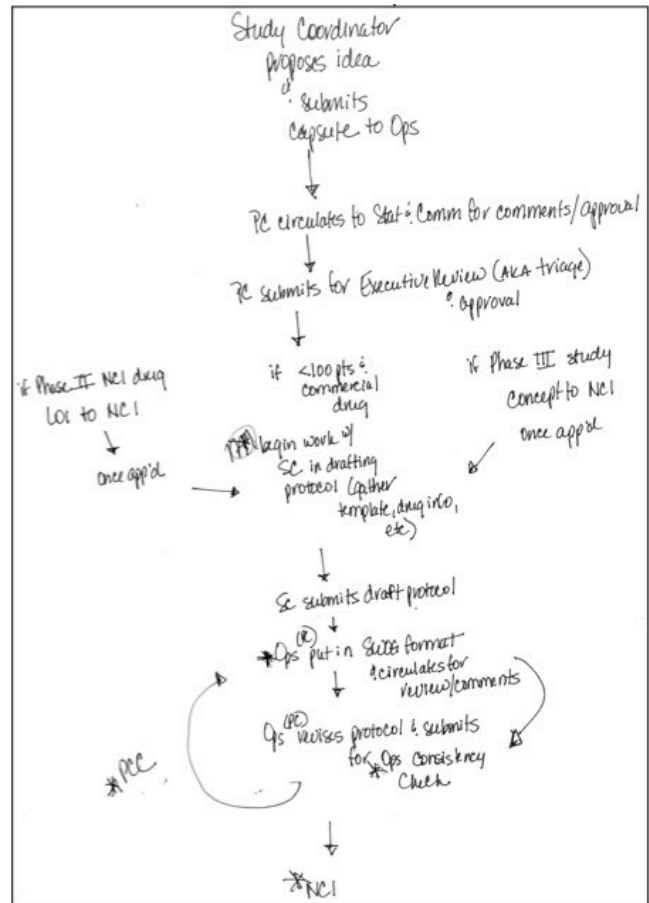 Study Coordinator
proposes idea
& submits
capsule to Ops
PC circulates to Stat & Comm for comments/approval
PC submits for Executive Review (AKA triage)
& approval
if Phase II NCI drug
LOI to NCI
once app'd
if <100 pts &
commercial
drug
if Phase III study
concept to NCI
once app'd
begin work w/
SC in drafting
protocol (gather
template, drug info,
etc)
SC submits draft protocol
*Ops put in SWOG format
& circulates for
review/comments
Ops (PC) revises protocol & submits
for *Ops consistency
check
*PCC
*NCI